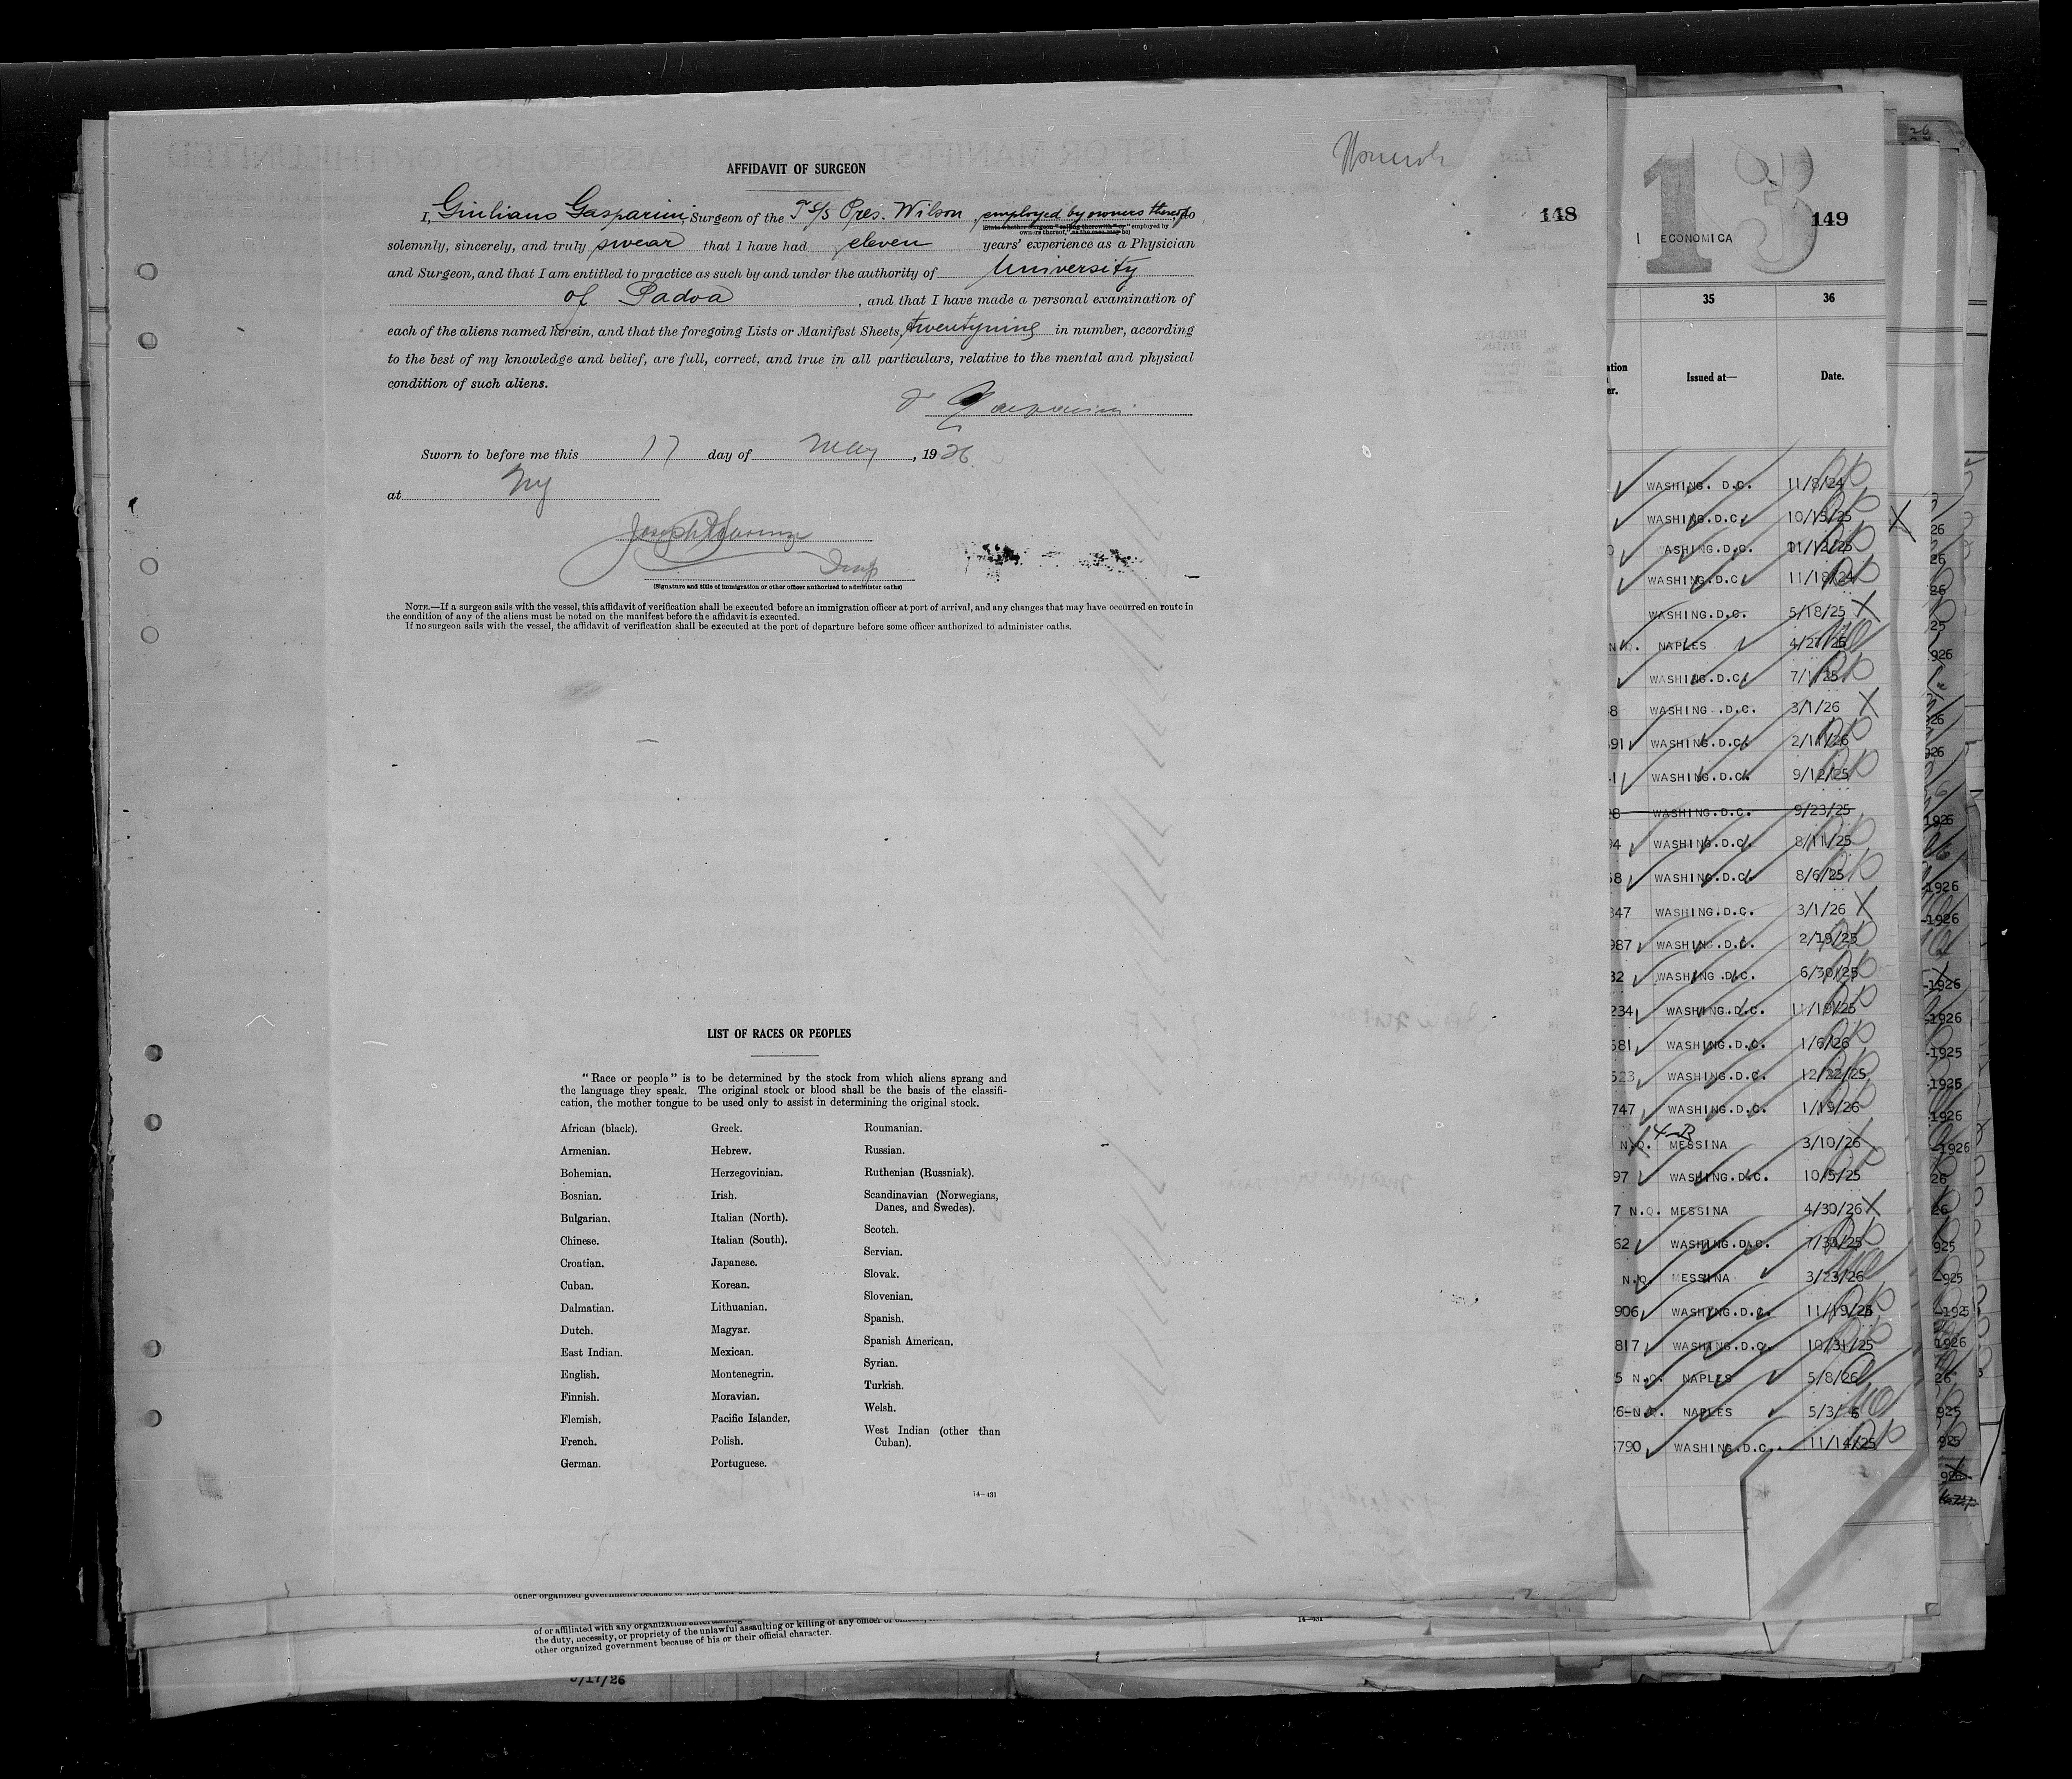 AFFIDAVIT OF SURGEON
148
I, Giuliano Gasparini, Surgeon of the T S/S Pres. Wilson, employed by owners thereof, do
(State whether surgeon "sailing therewith" or "employed by
owners thereof," as the case may be)
solemnly, sincerely, and truly swear that I have had eleven years' experience as a Physician
and Surgeon, and that I am entitled to practice as such by and under the authority of University
of Padova, and that I have made a personal examination of
each of the aliens named herein, and that the foregoing Lists or Manifest Sheets, twentynine in number, according
to the best of my knowledge and belief, are full, correct, and true in all particulars, relative to the mental and physical
condition of such aliens.
Dr Gasparini
Sworn to before me this 17 day of May, 1926
at NY
Joseph
Insp
(Signature and title of immigration or other officer authorized to administer oaths)
NOTE.—If a surgeon sails with the vessel, this affidavit of verification shall be executed before an immigration officer at port of arrival, and any changes that may have occurred en route in
the condition of any of the aliens must be noted on the manifest before the affidavit is executed.
If no surgeon sails with the vessel, the affidavit of verification shall be executed at the port of departure before some officer authorized to administer oaths.
LIST OF RACES OR PEOPLES
"Race or people" is to be determined by the stock from which aliens sprang and
the language they speak. The original stock or blood shall be the basis of the classifi-
cation, the mother tongue to be used only to assist in determining the original stock.
African (black).
Armenian.
Bohemian.
Bosnian.
Bulgarian.
Chinese.
Croatian.
Cuban.
Dalmatian.
Dutch.
East Indian.
English.
Finnish.
Flemish.
French.
German.
Greek.
Hebrew.
Herzegovinian.
Irish.
Italian (North).
Italian (South).
Japanese.
Korean.
Lithuanian.
Magyar.
Mexican.
Montenegrin.
Moravian.
Pacific Islander.
Polish.
Portuguese.
Roumanian.
Russian.
Ruthenian (Russniak).
Scandinavian (Norwegians,
Danes, and Swedes).
Scotch.
Servian.
Slovak.
Slovenian.
Spanish.
Spanish American.
Syrian.
Turkish.
Welsh.
West Indian (other than
Cuban).
14—431
other organized government because of his or their
of or affiliated with any organization entertaining
the duty, necessity, or propriety of the unlawful assaulting or killing of any officer
other organized government because of his or their official character.
14—431
5/17/26
13
149
ECONOMICA
35 36
Issued at— Date.
WASHING. D.C. 11/8/24
WASHING.D.C. 10/15/25
ASHING.D.C. 11/12/25
WASHING.D.C. 11/18/24
WASHING.D.C. 5/18/25
N.Q. NAPLES 4/27/26
WASHING.D.C. 7/1/25
8 WASHING.D.C. 3/1/26
491 WASHING.D.C. 2/11/26
WASHING.D.C. 9/12/25
28 WASHING.D.C. 9/23/25
94 WASHING.D.C. 8/11/25
58 WASHING.D.C. 8/6/25
347 WASHING.D.C. 3/1/26
987 WASHING.D.C. 2/19/25
32 WASHING.D.C. 6/30/25
234 WASHING.D.C. 11/19/25
581 WASHING.D.C. 1/6/26
523 WASHING.D.C. 12/22/25
747 WASHING.D.C. 1/19/26
N.Q. MESSINA 3/10/26
97 WASHING.D.C. 10/5/25
7 N.Q. MESSINA 4/30/26
62 WASHING.D.C. 7/30/25
N.Q. MESSINA 3/23/26
906 WASHING.D.C. 11/19/25
817 WASHING.D.C. 10/31/25
5 N.Q. NAPLES 5/8/26
26-N.Q. NAPLES 5/3/ 6
5790 WASHING.D.C. 11/14/25